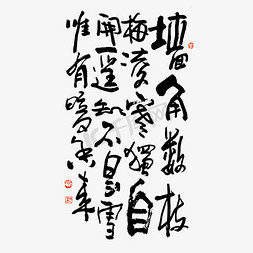 墙角數枝
梅凌寒獨自
開遥知不是雪
唯有暗香来